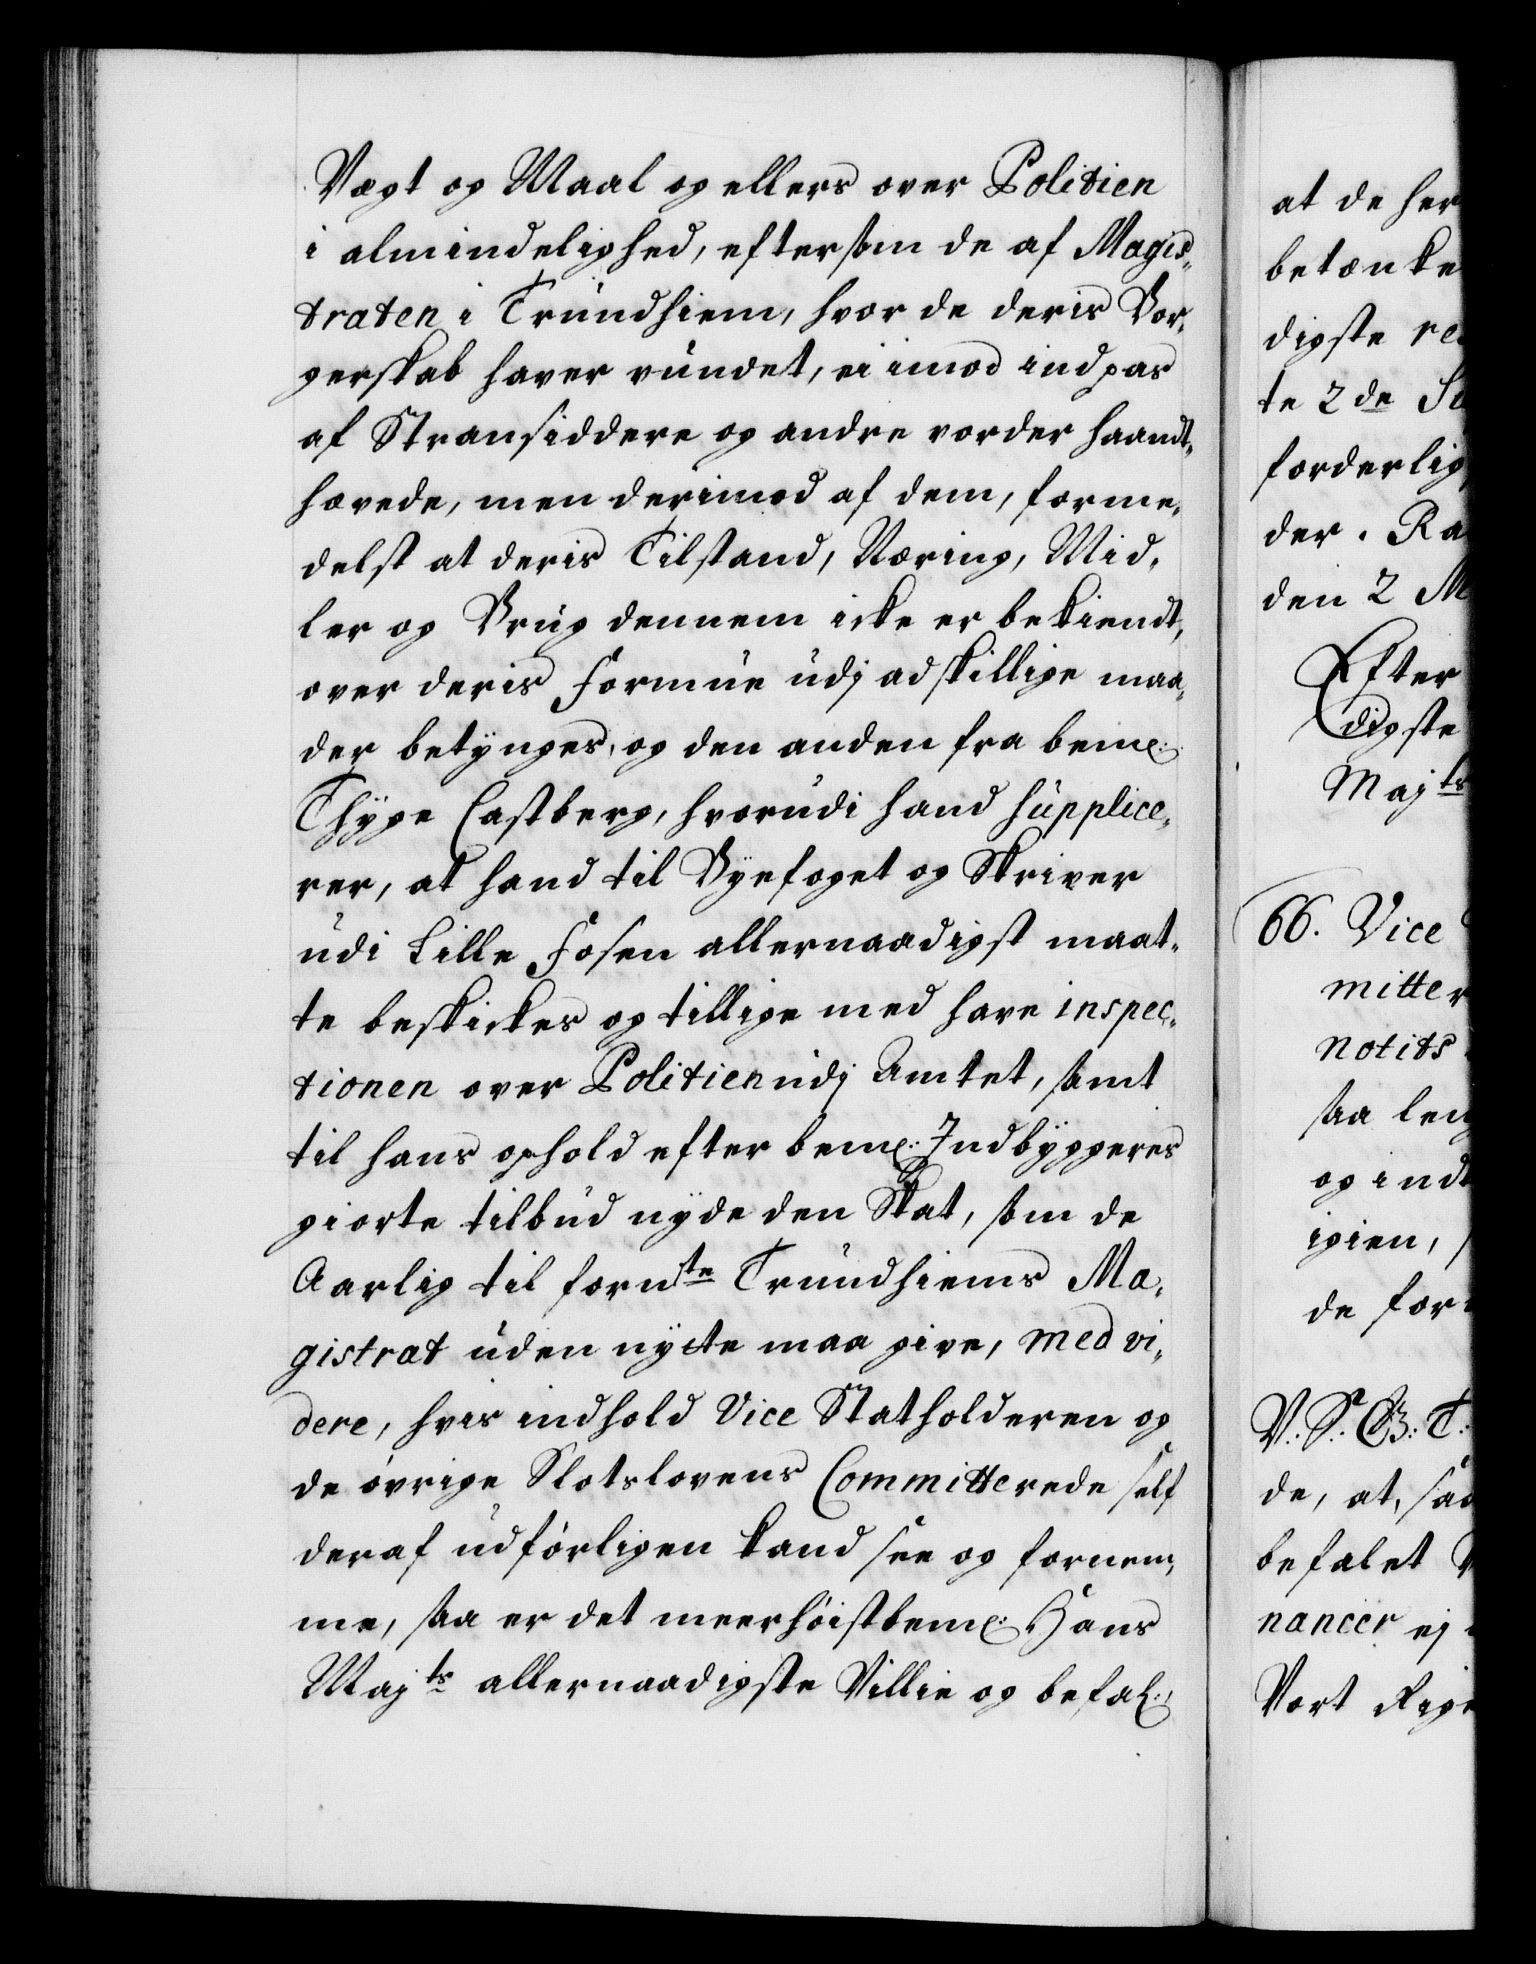 Vægt og Maal og ellers over Politien
i almindelighed, eftersom de af Magis„
traten i Trundhiem, hvor de deris Bor„
gerskab haver vundet, ei imod indpas
af Stransiddere og andre vorder haandt„
hævede, men derimod af dem, forme„
delst at deris Tilstand, Næring, Mid„
ler og Brug dennem icke er bekiendt,
over deris formue udj adskillige maa„
der betynges, og den anden fra bem:
Thyge Castberg, hvorudi hand supplice„
rer, at hand til Byefoget og Skriver
udi Lille Fosen allernaadigst maat„
te beskickes og tillige med have inspec„
tionen over Politien udj Amtet, samt
til hans ophold efter bem: Indbyggeres
giorte tilbud nyde den Skat, som de
Aarlig til fornte Trundhiems Ma„
gistrat uden nytte maa give, med vi„
dere, hvis indhold Vice Statholderen og
de øvrige Slotslovens Committerede self
deraf udførligen kand see og fornem„
me, saa er det meerhøistbem: Hans
Majts allernaadigste Villie og befal:,
at de her
betænke
digste re
te 2de Su
forderlig
der. Ra
den 2 M
Efter
digste
Majts
66. Vice
mitter
notits
saa leng
og indt
igien,
de for
V: S: G: T:
de, at, saa
befalet
nancer ej
Vort Rige